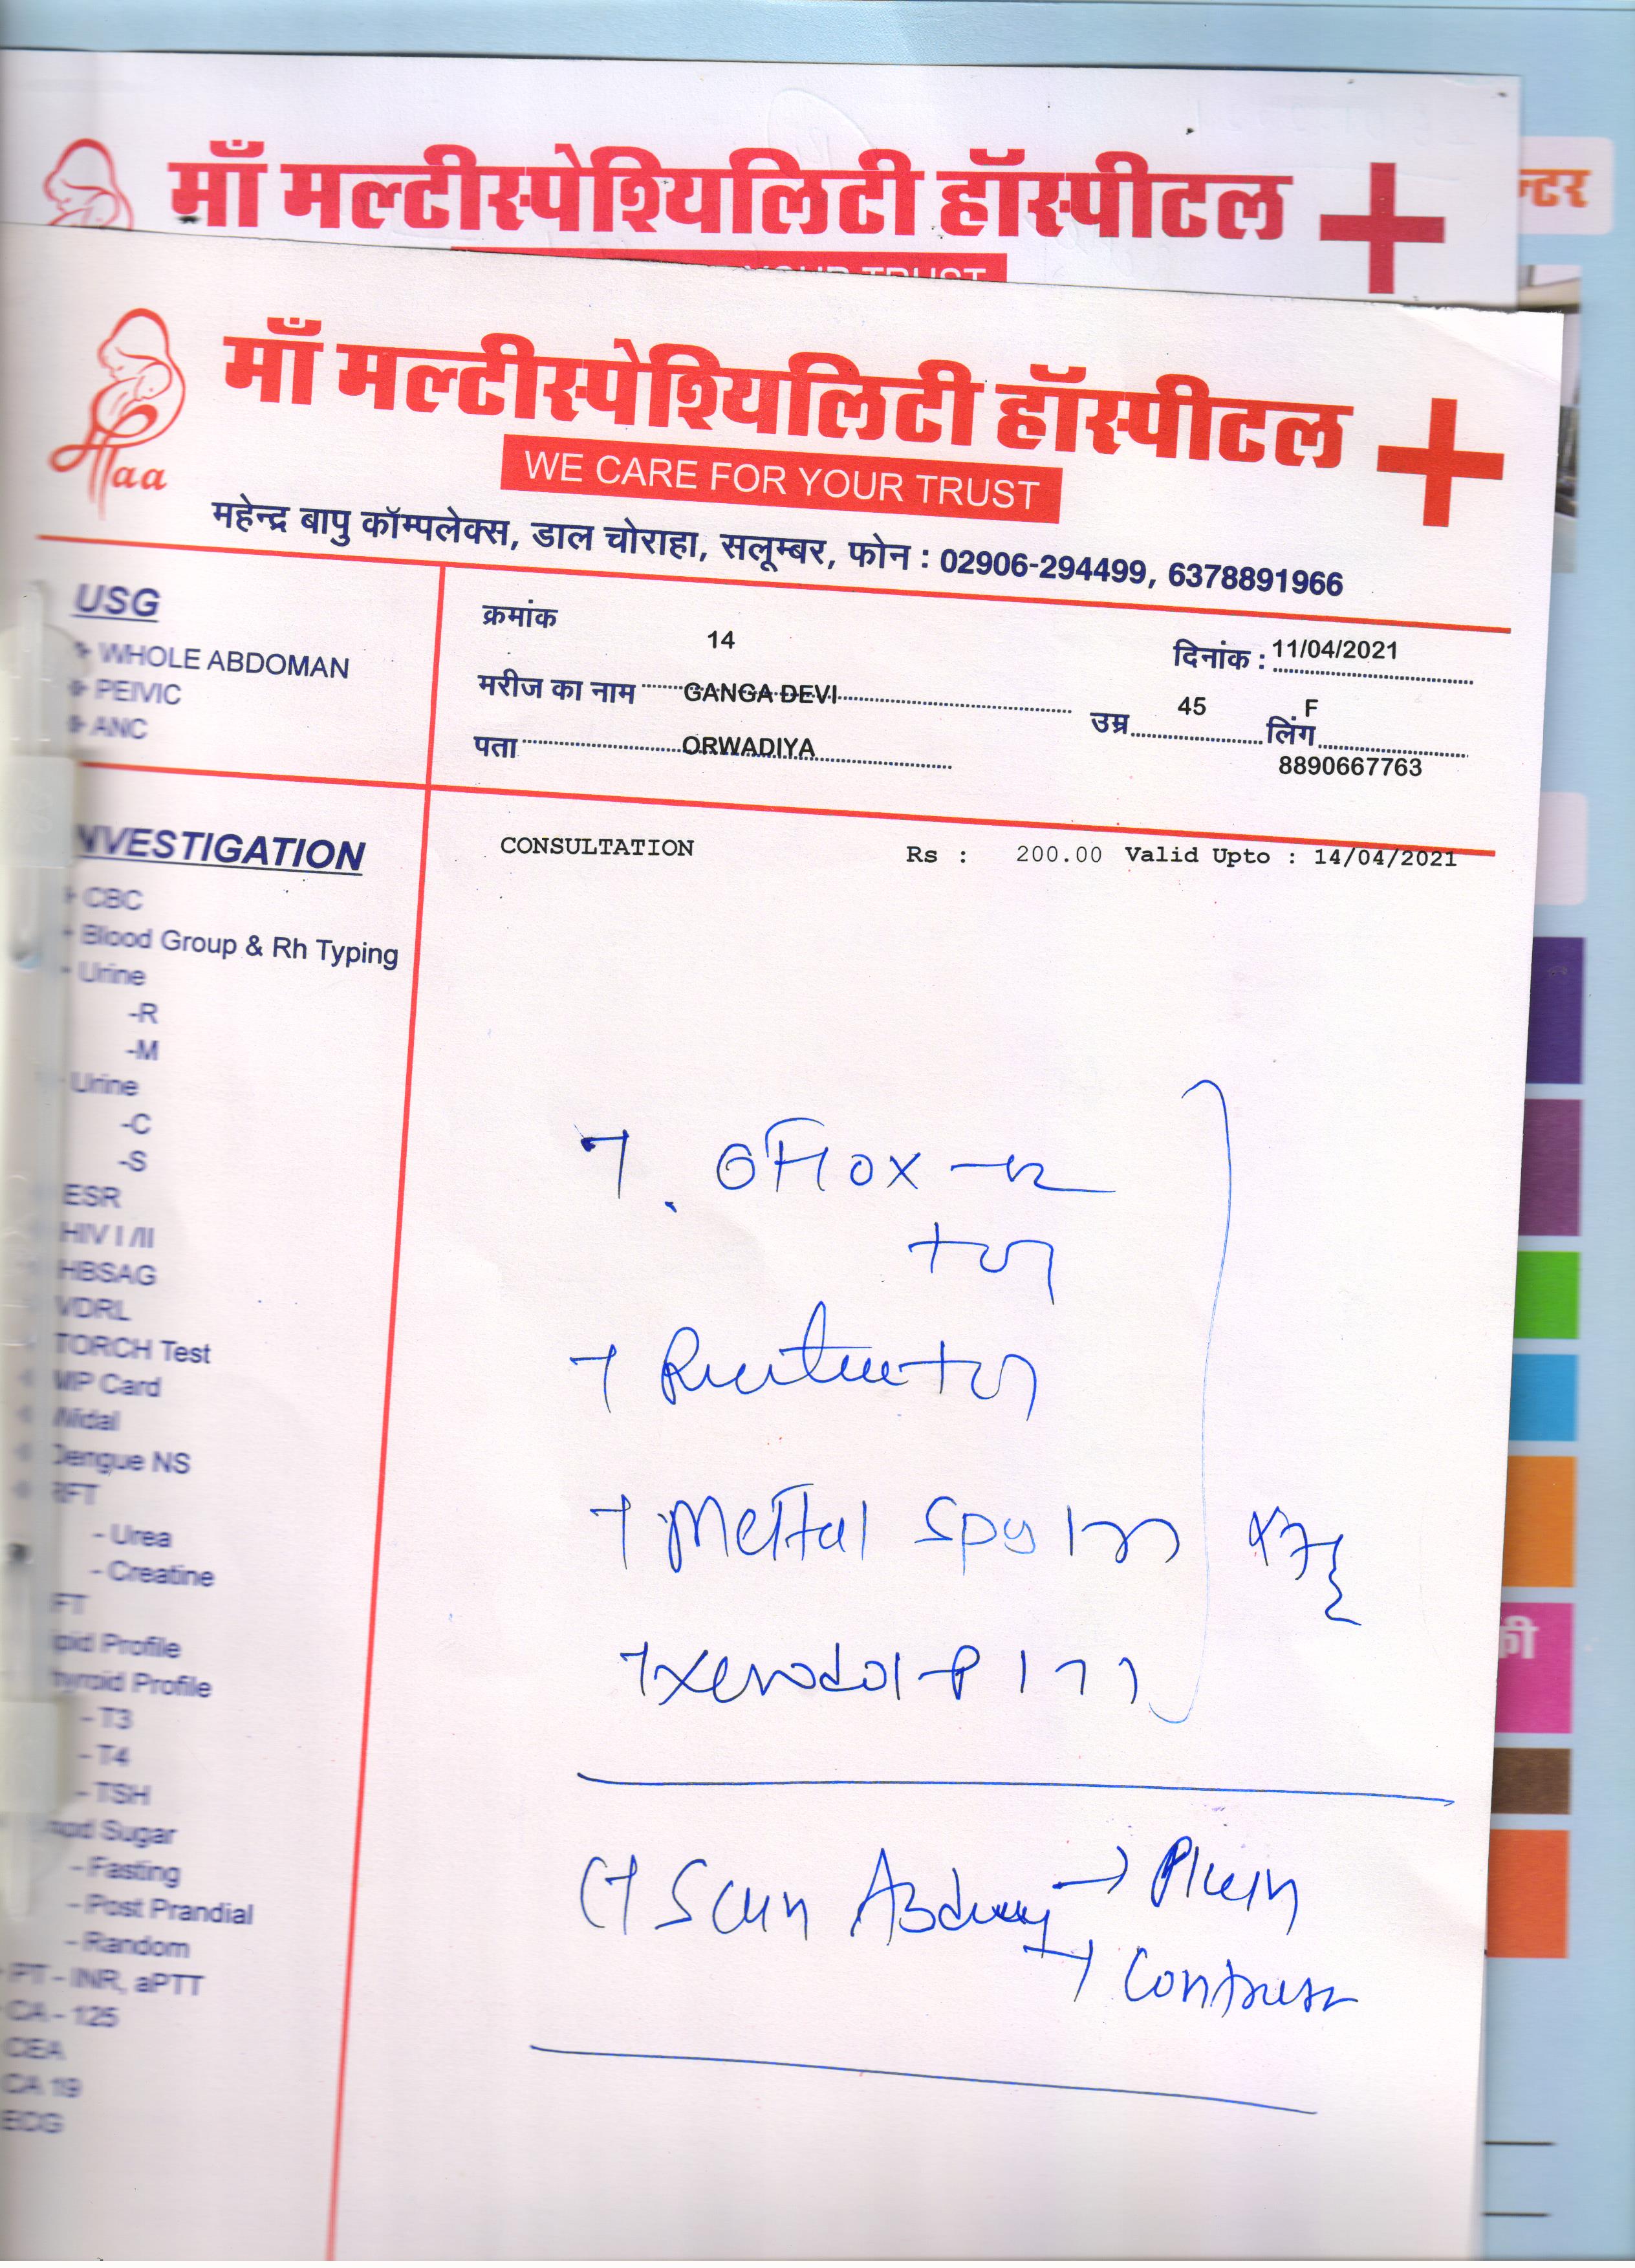 न्टर
माँ मल्टीस्पेश्यिलिटी हॉस्पीटल
YOUR TRUST
माँ मल्टीस्पेश्यिलिटी हॉस्पीटल
Maa
WE CARE FOR YOUR TRUST
महेन्द्र बापु कॉम्पलेक्स, डाल चोराहा, सलूम्बर, फोन : 02906-294499, 6378891966
USG
WHOLE ABDOMAN
PEIVIC
ANC
क्रमांक 14
दिनांक : 11/04/2021
मरीज का नाम GANGA DEVI
उम्र 45 लिंग F
पता ORWADIYA
8890667763
CONSULTATION Rs : 200.00 Valid Upto : 14/04/2021
NVESTIGATION
CBC
Blood Group & Rh Typing
- Urine
-R
-M
Urine
-C
-S
ESR
HIV I /II
HBSAG
VDRL
TORCH Test
MP Card
Widal
Dengue NS
RFT
- Urea
- Creatine
FT
ipid Profile
hyroid Profile
- T3
- T4
- TSH
Sugar
- Fasting
- Post Prandial
- Random
PT - INR, aPTT
CA - 125
CEA
CA 19
ECG
T. OFlox
T
T Meftal Spas
T Xenodol-P
CT Scan Abdomen → Plain
→ Contrast
की